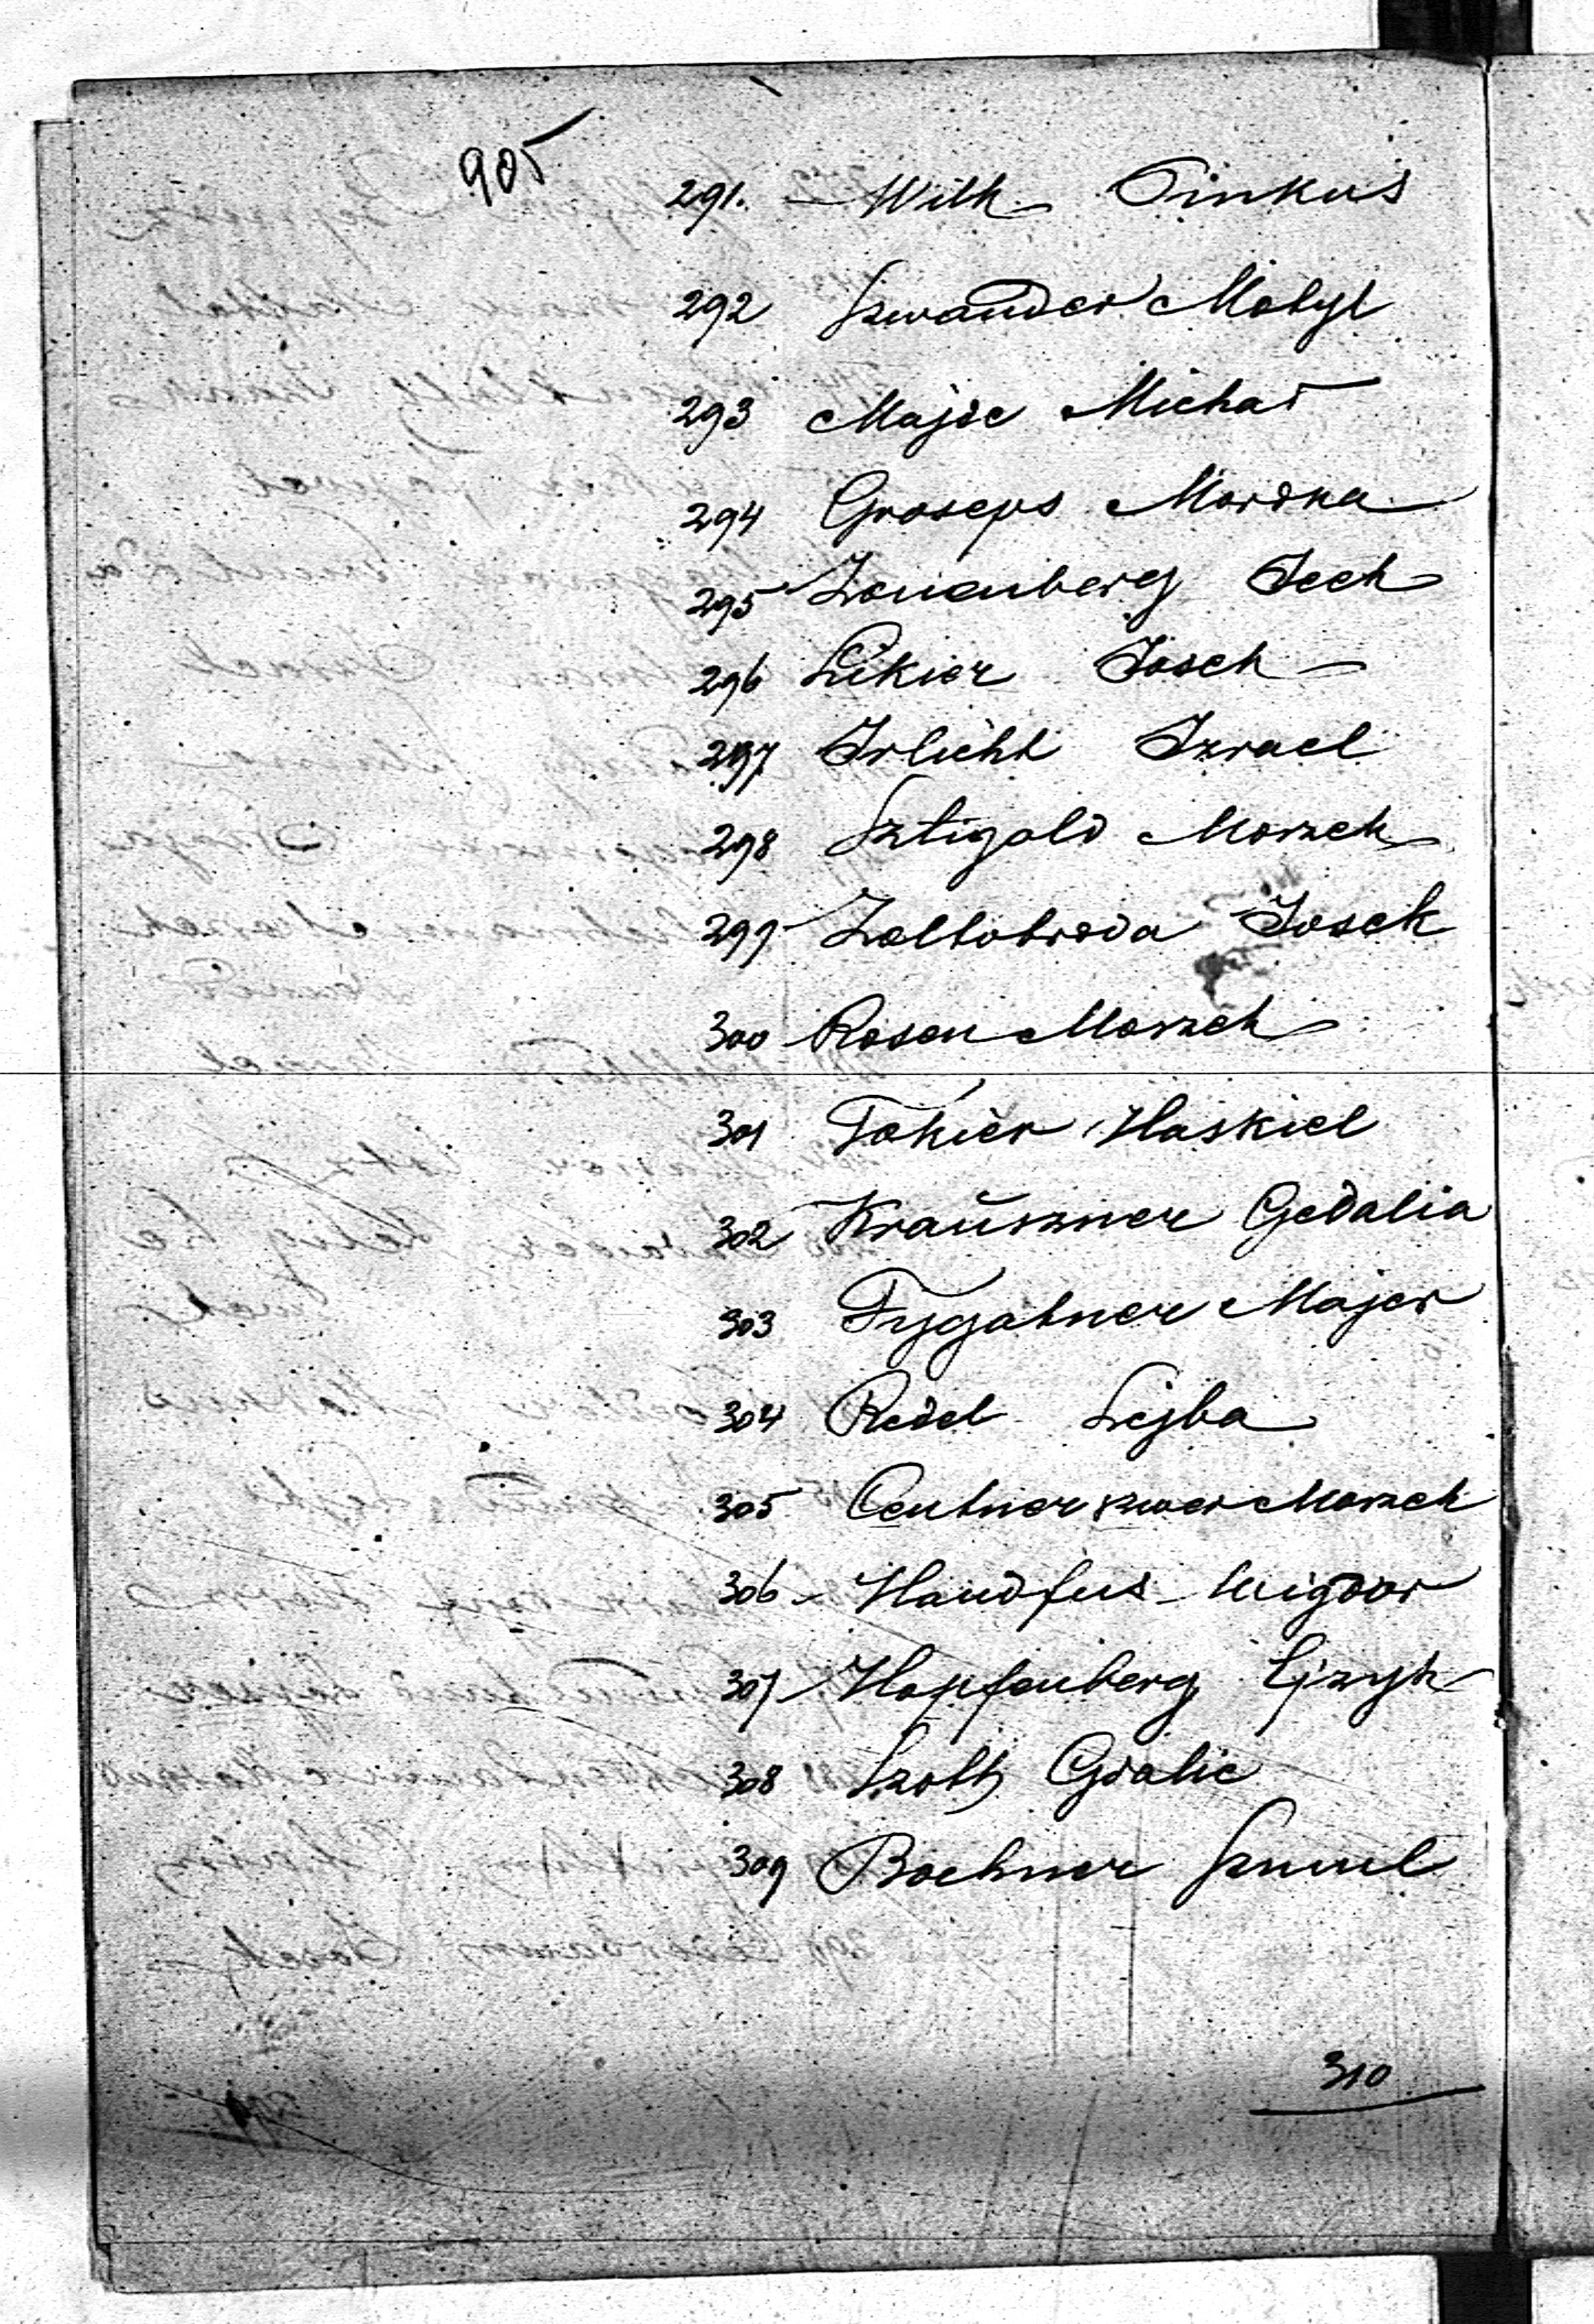 905
291. Wilk Pinkus
292 Szwander Motyl
293 Majde Michał
294 Groseps Mordka
295 Zonenberg Icek
296 Likier Josek
297 Irlicht Izrael
298 Sztigold Moszek
299 Zoltobroda Josek
300 Rosen Moszek
301 Tokier Haskiel
302 Krauszner Gedalia
303 Fygatner Majer
304 Redel Lejba
305 Centnerszwer Moszek
306 Handfus Wigdor
307 Hopfenberg Ejzyk
308 Szolz Gdalie
309 Bochner Szmul
310